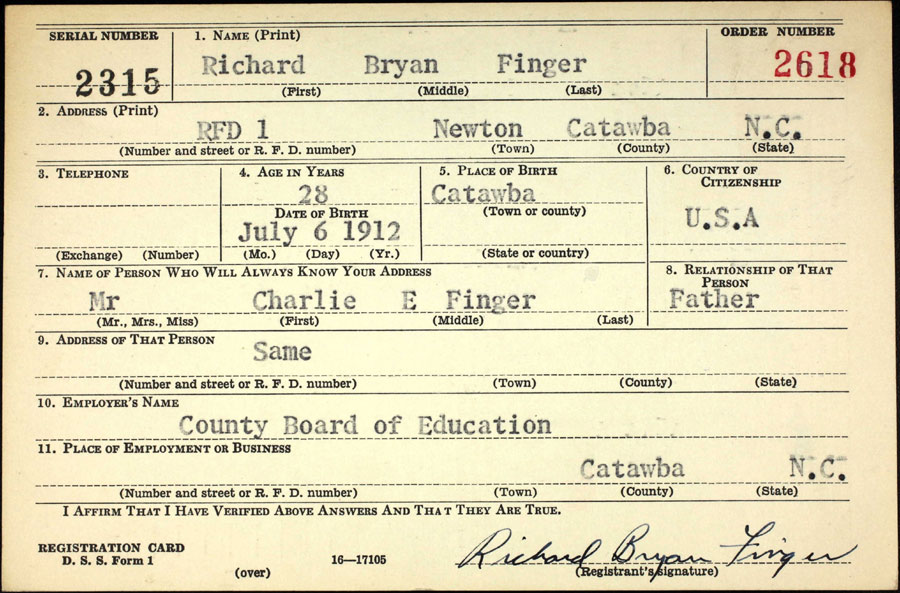 SERIAL NUMBER 1. NAME (Print) ORDER NUMBER
2315 Richard Bryan Finger 2618
(First) (Middle) (Last)
2. ADDRESS (Print)
RFD 1 Newton Catawba N.C.
(Number and street or R. F. D. number) (Town) (County) (State)
3. TELEPHONE 4. AGE IN YEARS 5. PLACE OF BIRTH 6. COUNTRY OF CITIZENSHIP
28 Catawba
DATE OF BIRTH (Town or county) U.S.A
July 6 1912
(Exchange) (Number) (Mo.) (Day) (Yr.) (State or country)
7. NAME OF PERSON WHO WILL ALWAYS KNOW YOUR ADDRESS 8. RELATIONSHIP OF THAT PERSON
Mr Charlie E Finger Father
(Mr., Mrs., Miss) (First) (Middle) (Last)
9. ADDRESS OF THAT PERSON
Same
(Number and street or R. F. D. number) (Town) (County) (State)
10. EMPLOYER'S NAME
County Board of Education
11. PLACE OF EMPLOYMENT OR BUSINESS
Catawba N.C.
(Number and street or R. F. D. number) (Town) (County) (State)
I AFFIRM THAT I HAVE VERIFIED ABOVE ANSWERS AND THAT THEY ARE TRUE.
REGISTRATION CARD
D. S. S. Form 1 16—17105 Richard Bryan Finger
(over) (Registrant's signature)